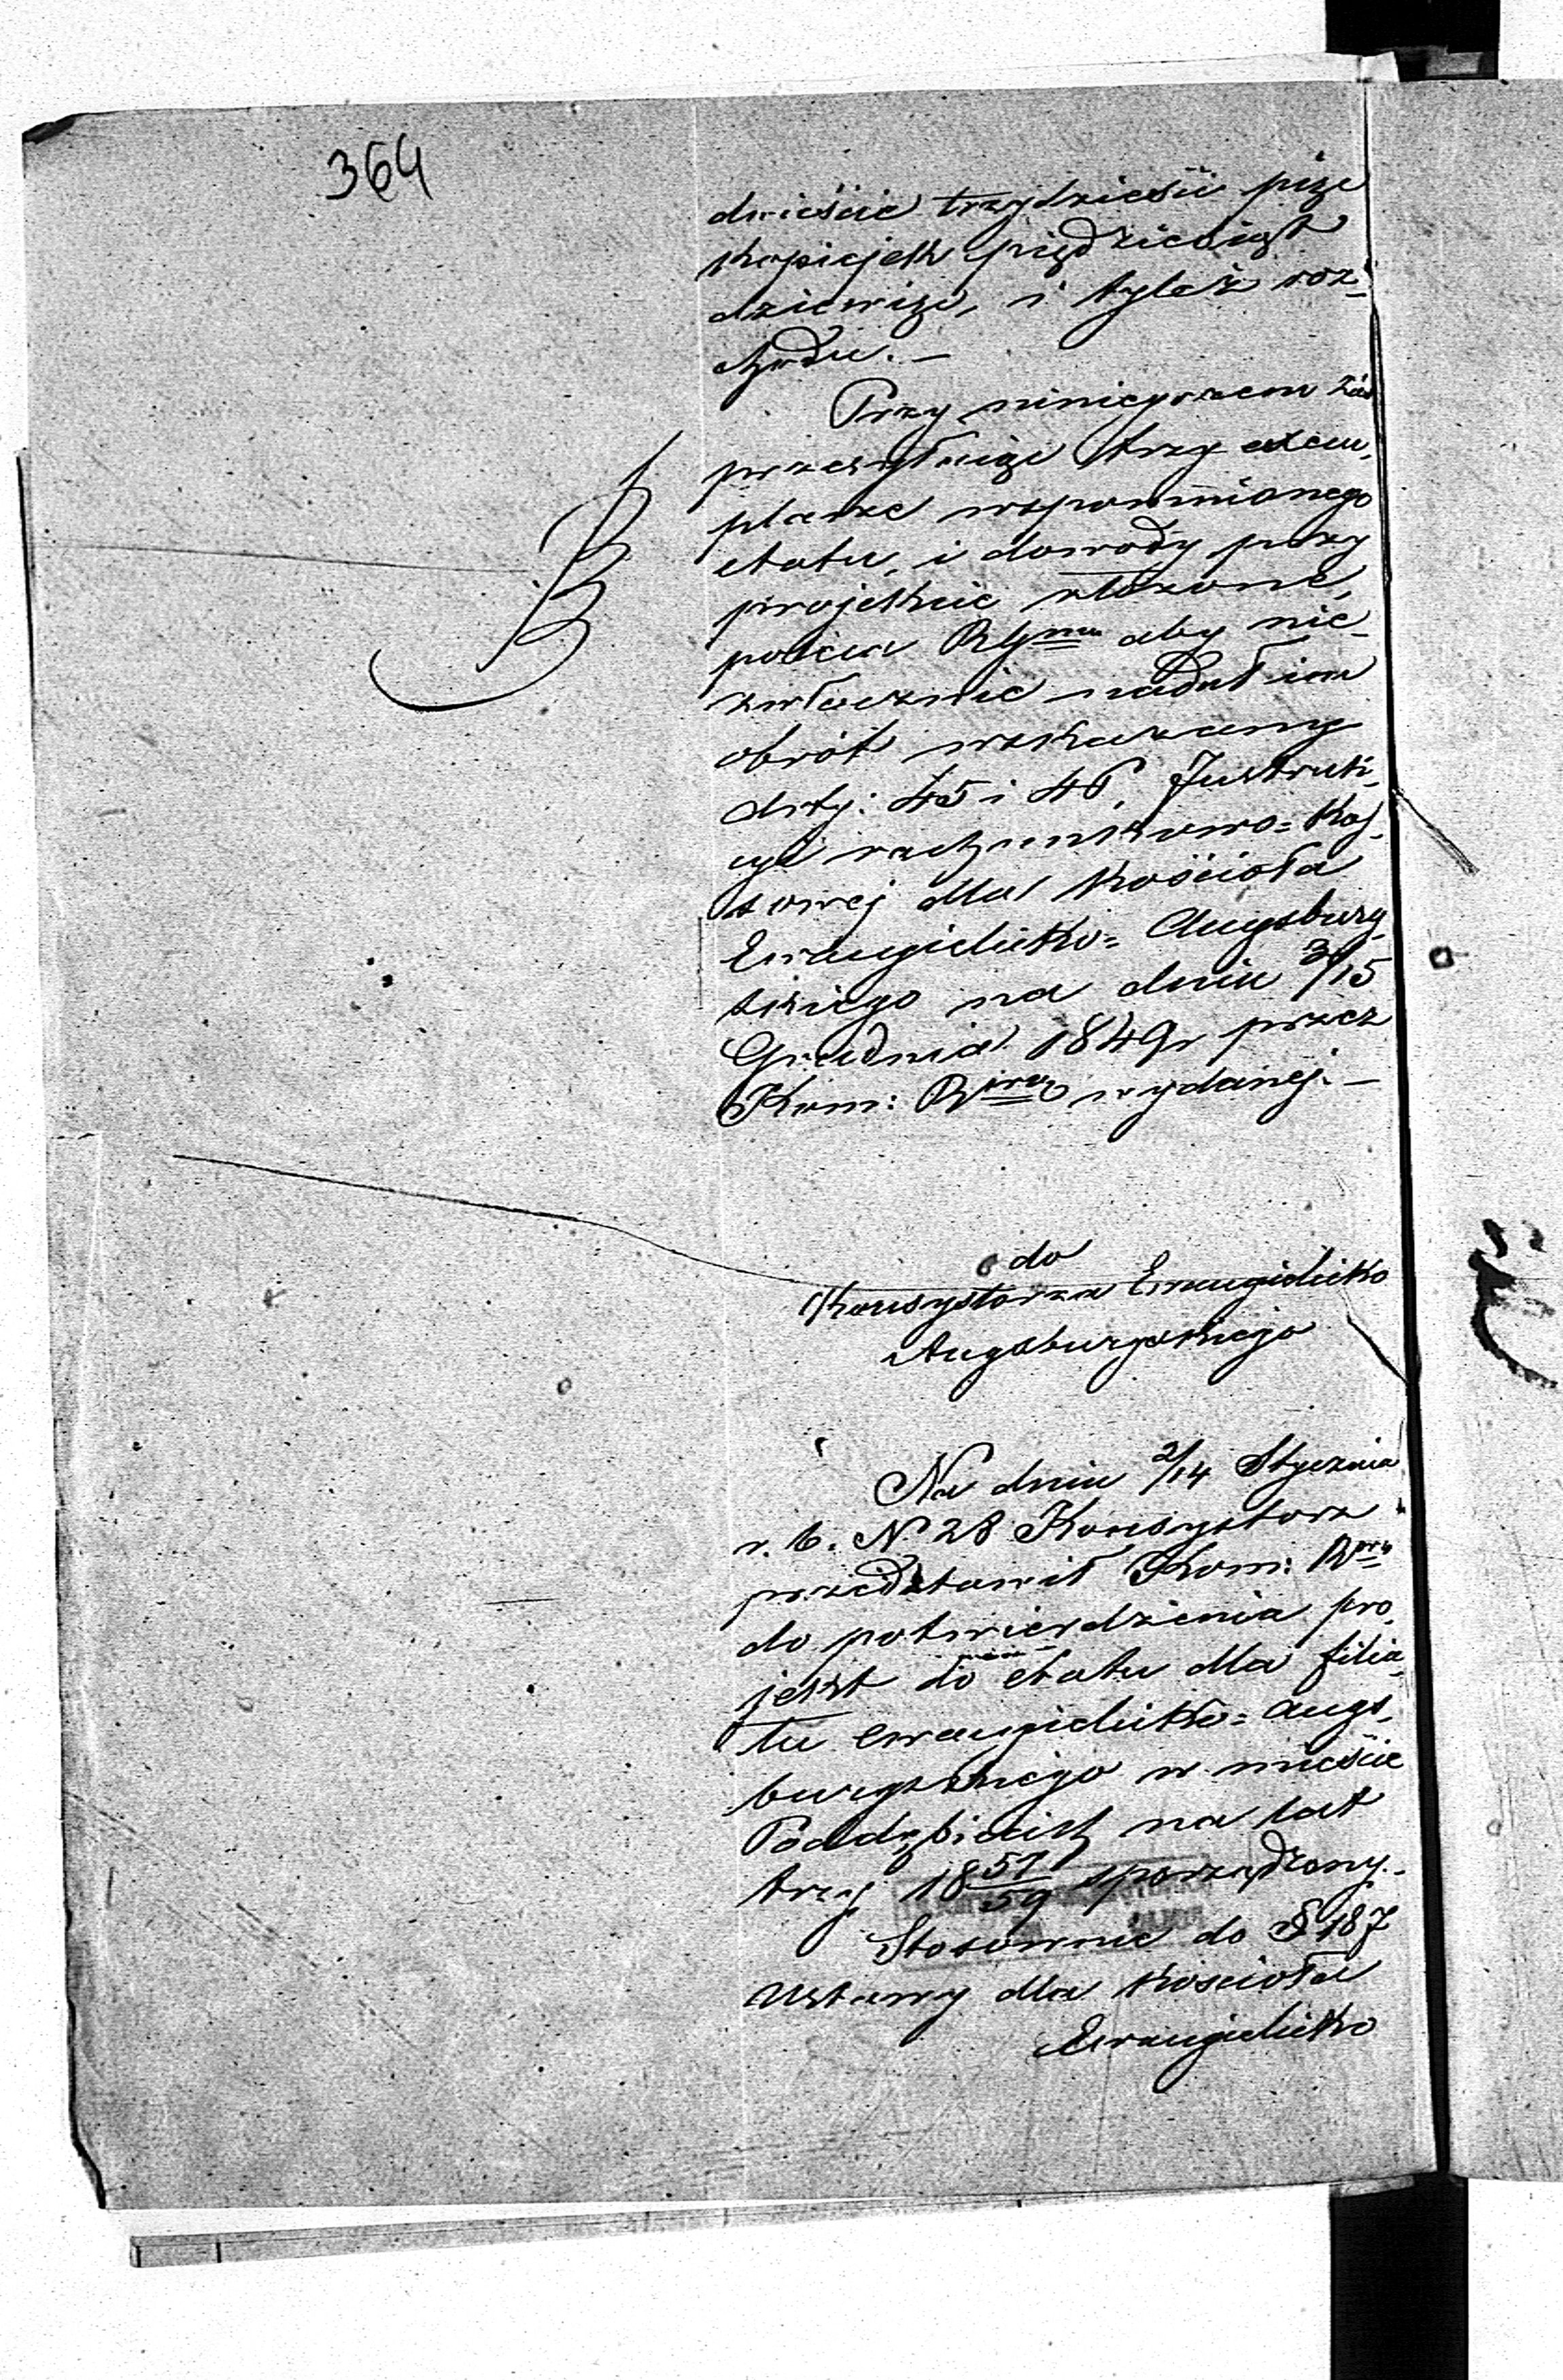 364
dwieście trzydzieści pięć
kopiejek pięćdziesiąt
dziewięć, i tyleż roz-
chodu. —
Przy niniejszem zaś
przesyłając trzy exem-
plarze wspomnionego
etatu, i dowody przy
projekcie złożone,
poleca Rząd aby nie-
zwłocznie nadał im
obrót wskazany
Arty: 45 i 46, Instruk-
cyi rachunkowo=kas-
sowej dla kościoła
Ewangielicko=Augsburg-
skiego na dniu 3/15
Grudnia 1849 r przez
Kom: Rową wydanej. —
do
Konsystorza Ewangielicko
Augsburgskiego
Na dniu 2/14 Stycznia
r. b. N. 28 Konsystorz
przedstawił Kom: Rwéj
do potwierdzenia pro-
jekt do etatu dla filia-
łu ewangielicko=augs-
burgskiego w mieście
Poddębicach na lat
trzy 1857/59 sporządzony.
Stosownie do § 187
Ustawy dla kościoła
Ewangielicko